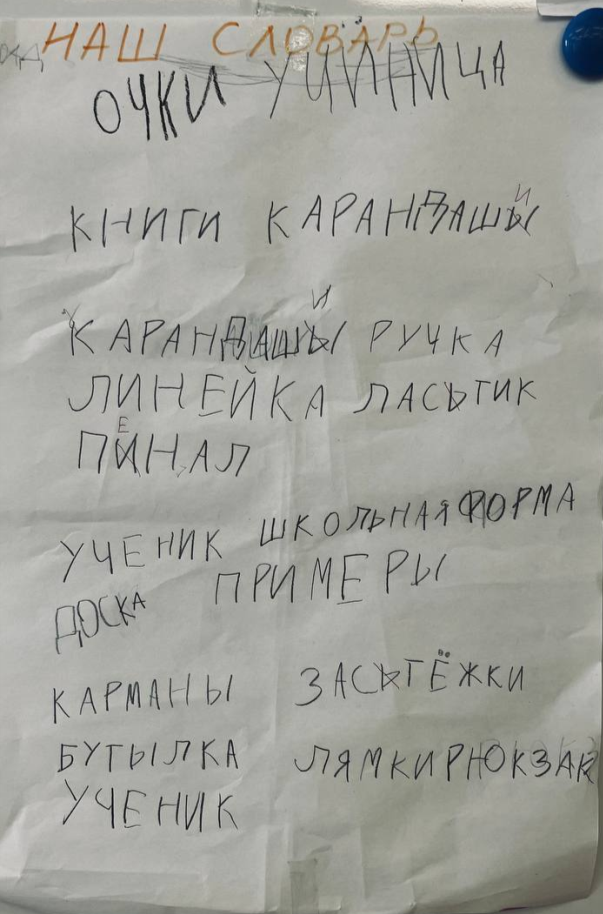 НАШ СЛОВАРЬ
ОЧКИ
КНИГИ КАРАНДАШИ
КАРАНДАШИ РУЧКА
ЛИНЕЙКА ЛАСЬТИК
ПЕНАЛ
УЧЕНИК ШКОЛЬНАЯ ФОРМА
ДОСКА ПРИМЕРЫ
КАРМАНЫ ЗАСЬТЁЖКИ
БУТЫЛКА ЛЯМКИ РЮКЗАК
УЧЕНИК